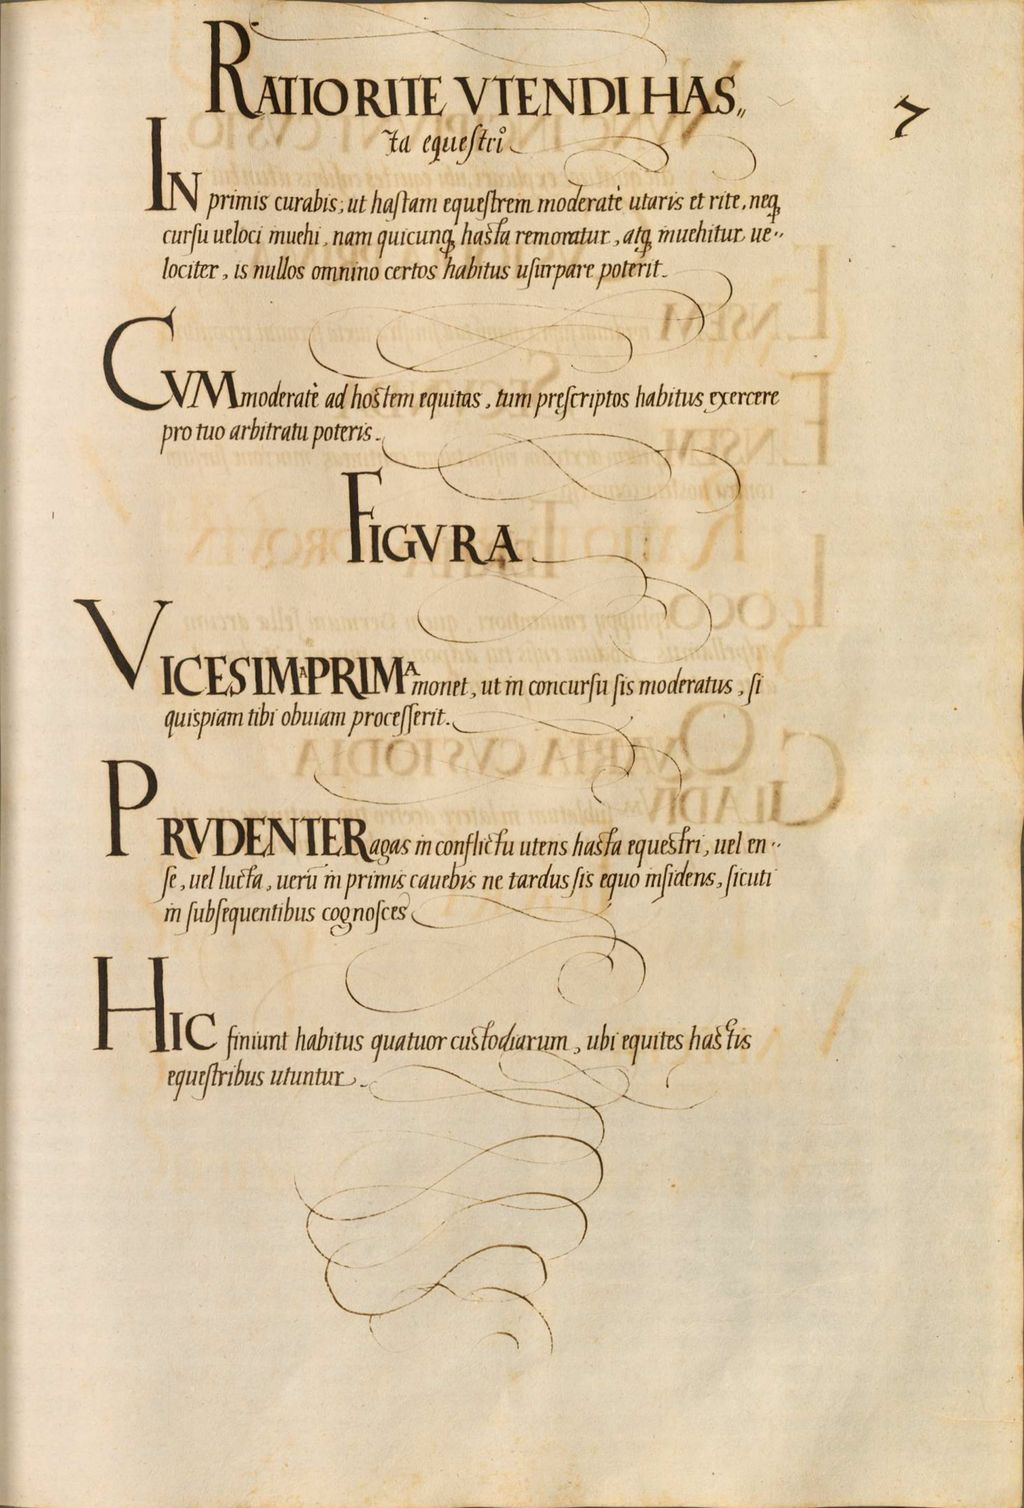 RATIO RITE VTENDI HAS„
ta equeſtri.
7
IN primis curabis, ut haſtam equeſtrem moderatè utaris et rite, neq,
curſu ueloci muehi, nam quicunq, haſta remoratur, atq, muehitur ue··
lociter, is nullos omnino certos habitus uſurpare poterit.
CVM moderatè ad hoſtem equitas, tum pręſcriptos habitus exercere
pro tuo arbitratu poteris.
FIGVRA
VICESIMA PRIMA monet, ut in concurſu ſis moderatus, ſi
quispiam tibi obuiam proceſſerit.
PRVDENTER agas in conflictu utens haſta equeſtri, uel en··
ſe, uel lucta, uerū in primis cauebis ne tardus ſis equo inſidens, ſicuti
in ſubſequentibus cognoſces
HIC finiunt habitus quatuor cuſtodiarum, ubi equites haſtis
equeſtribus utuntur.